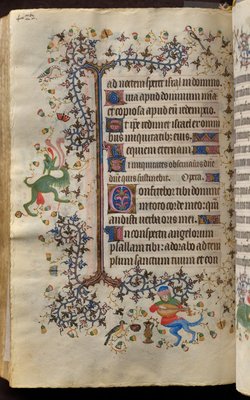 ad noctem speret isrl in domino.
Quia apud dominum mia
et copiosa apud eum redempcio.
Et ipse redimet israel ex om
ibus iniquitatibus eius.
Requiem eternam
Si iniquitates observaveris dne
dne quis sustinebit.
Confitebor tibi domine
in toto corde meo: qm
audisti verba oris mei.
In conspectu angelorum
psallam tibi: adorabo ad tem
plum sanctum tuum et con